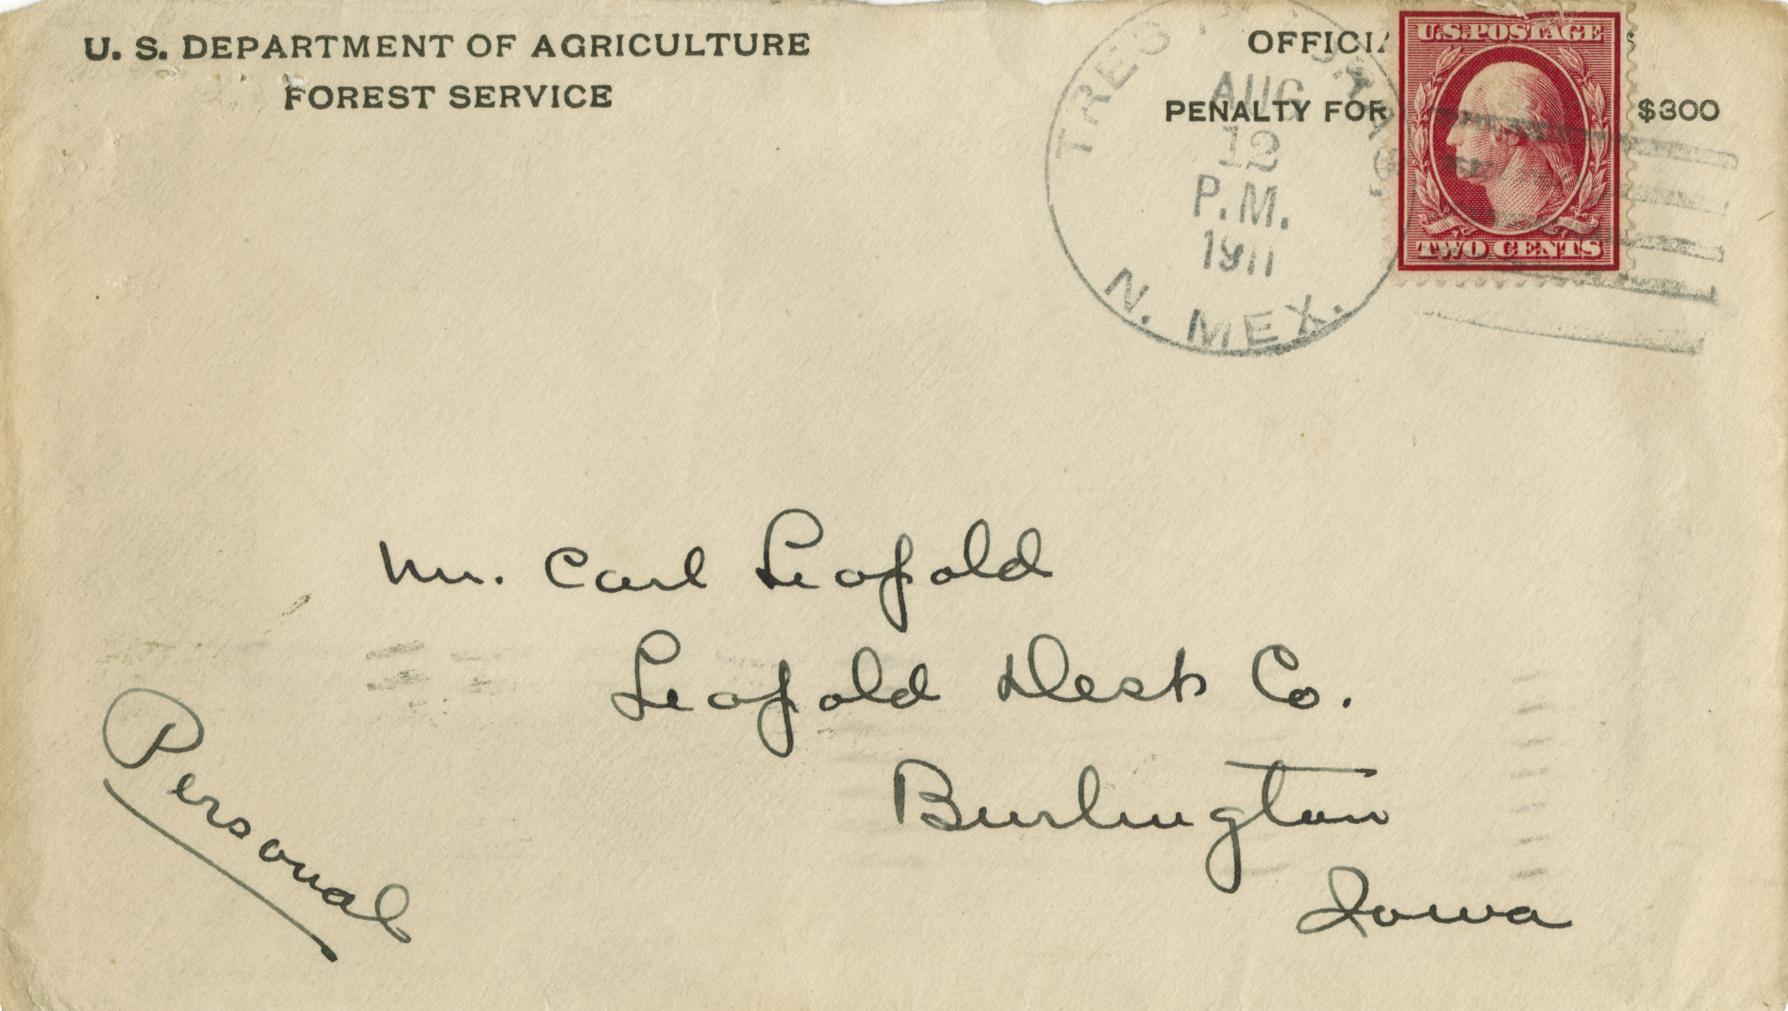 U. S. DEPARTMENT OF AGRICULTURE
FOREST SERVICE
PENALTY FOR $300
TRES
AUG
12
P.M.
1911
N. MEX.
U.S. POSTAGE
TWO CENTS
Mr. Carl Leopold
Leopold Desk Co.
Burlington
Iowa
Personal